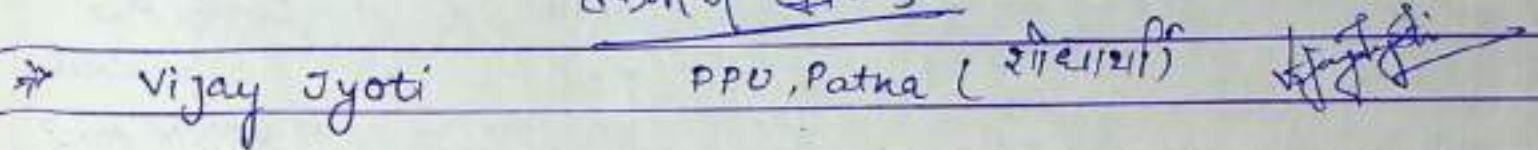 ⇒ Vijay Jyoti PPU, Patna (शोधार्थी)